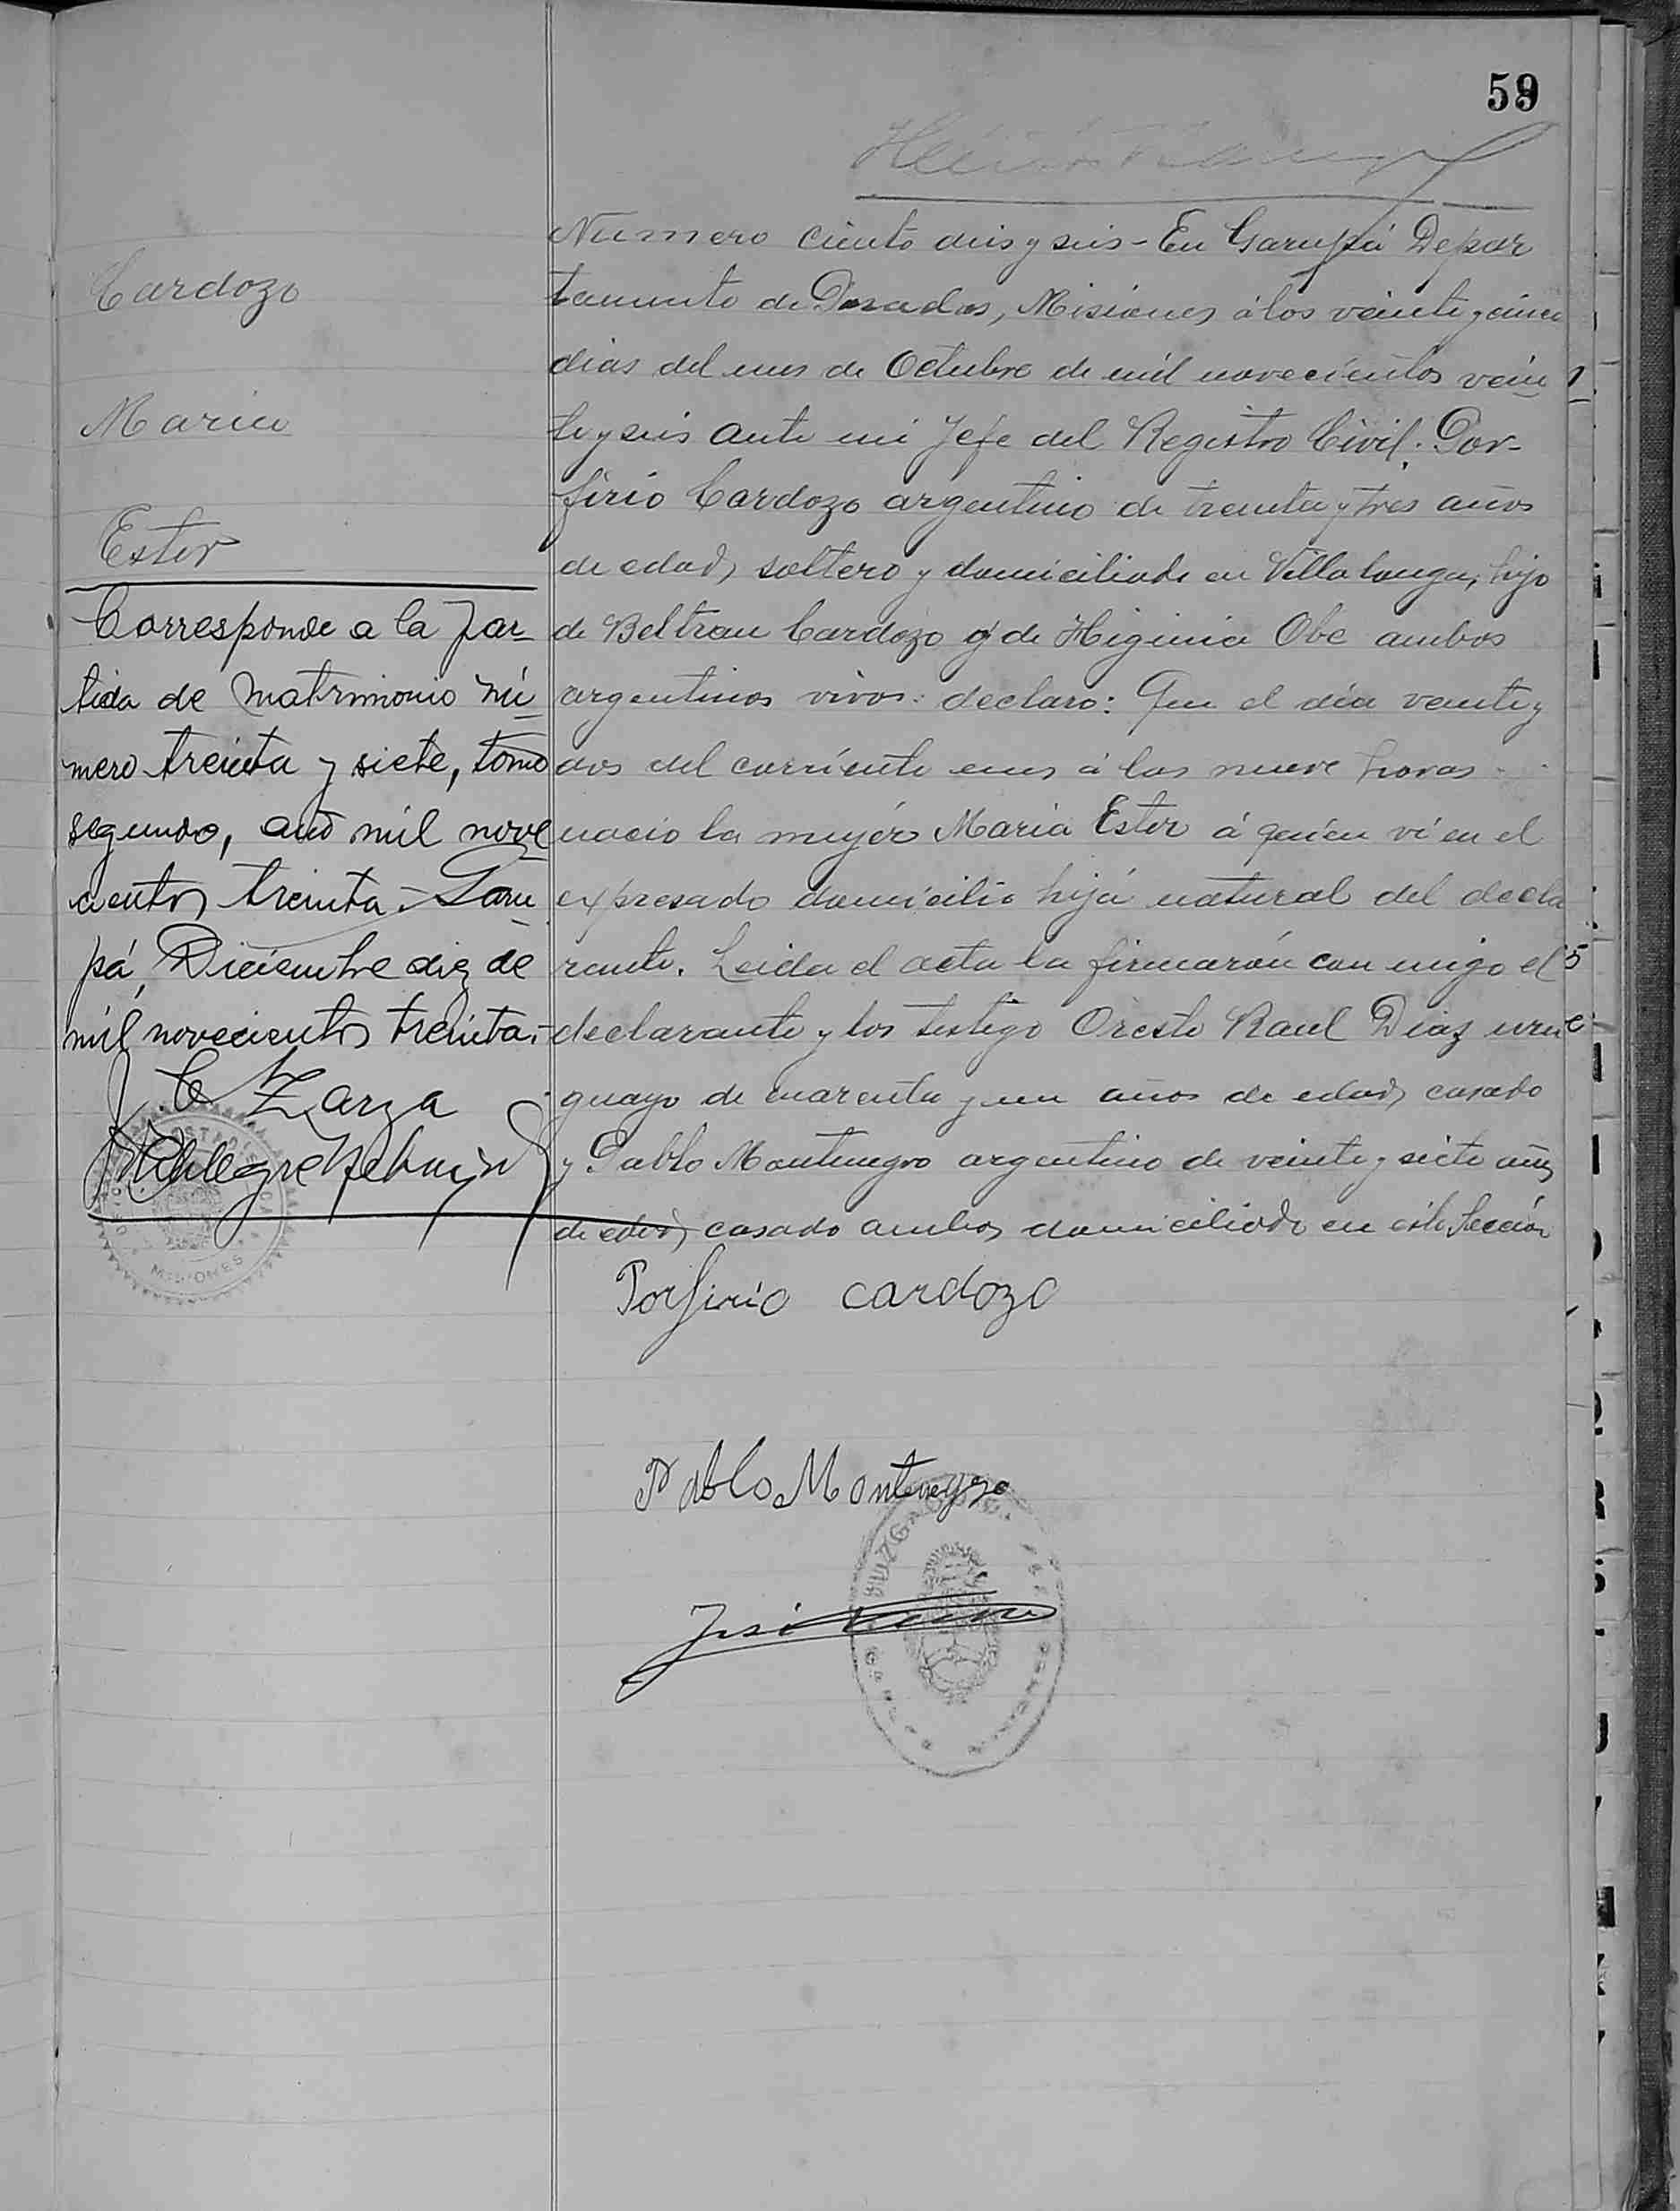 59
Cardozo
Maria
Ester
Corresponde a la par-
tida de matrimonio nú-
mero treinta y siete, tomo
segundo, año mil nove
cientos treinta.- Garu
pá, Diciembre diez de
mil novecientos treinta.-
C Zarza
Numero Ciento dies y seis - En Garupá Depar
tamento de Posadas, Misiones á los veinte y cinco
dias del mes de Octubre de mil novecientos vein
te y seis ante mi Jefe del Registro Civil. Por-
firio Cardozo argentino de treinta y tres años
de edad, soltero y domiciliado en Villa longa, hijo
de Beltran Cardozo y de Higinia Obe ambos
argentinos vivos: declaro: Que el dia veinte y
dos del corriente mes á las nueve horas
nacio la mujer Maria Ester á quien vi en el
expresado domicilio hija natural del decla
rante. Leida el acta la firmarón con migo el
declarante y los testigo Oreste Raul Diaz uru
guayo de cuarenta y un años de edad, casado
y Pablo Montenegro argentino de veinte y siete años
de edad, casado ambos domiciliado en esta Sección
Porfirio Cardozo
Pablo Montenegro
José
MISIONES